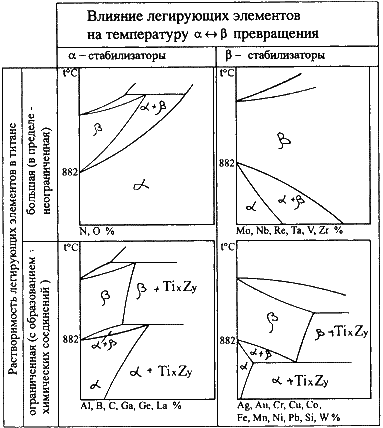 Влияние легирующих элементов
на температуру α↔β превращения
α – стабилизаторы
β – стабилизаторы
Растворимость легирующих элементов в титане
большая (в пределе -
неограниченная)
ограниченная (с образованием
химических соединений )
t°C
β
α+β
882
α
N, O %
t°C
β
882
α
α+β
Mo, Nb, Re, Ta, V, Zr %
t°C
β
β + TixZy
882
α+β
α
α + TixZy
Al, B, C, Ga, Ge, La %
t°C
β
β+TixZy
882
α+β
α
α+TixZy
Ag, Au, Cr, Cu, Co,
Fe, Mn, Ni, Pb, Si, W %